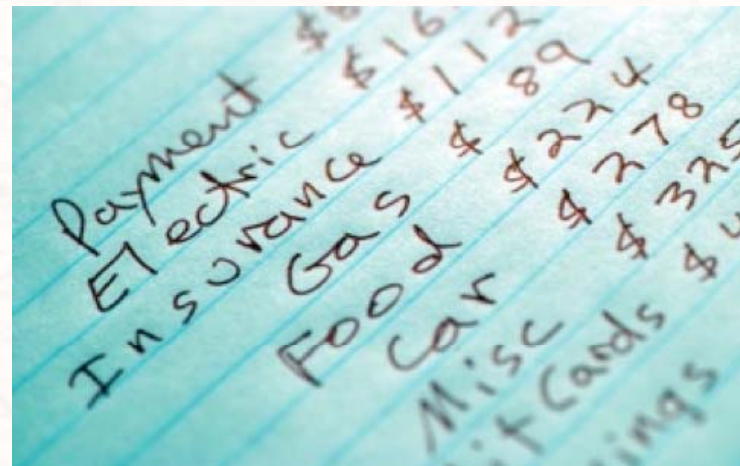 Payment $
Electric $16
Insurance $112
Gas $ 89
Food $224
Car $ 278
Misc $ 325
it Cards $
ings